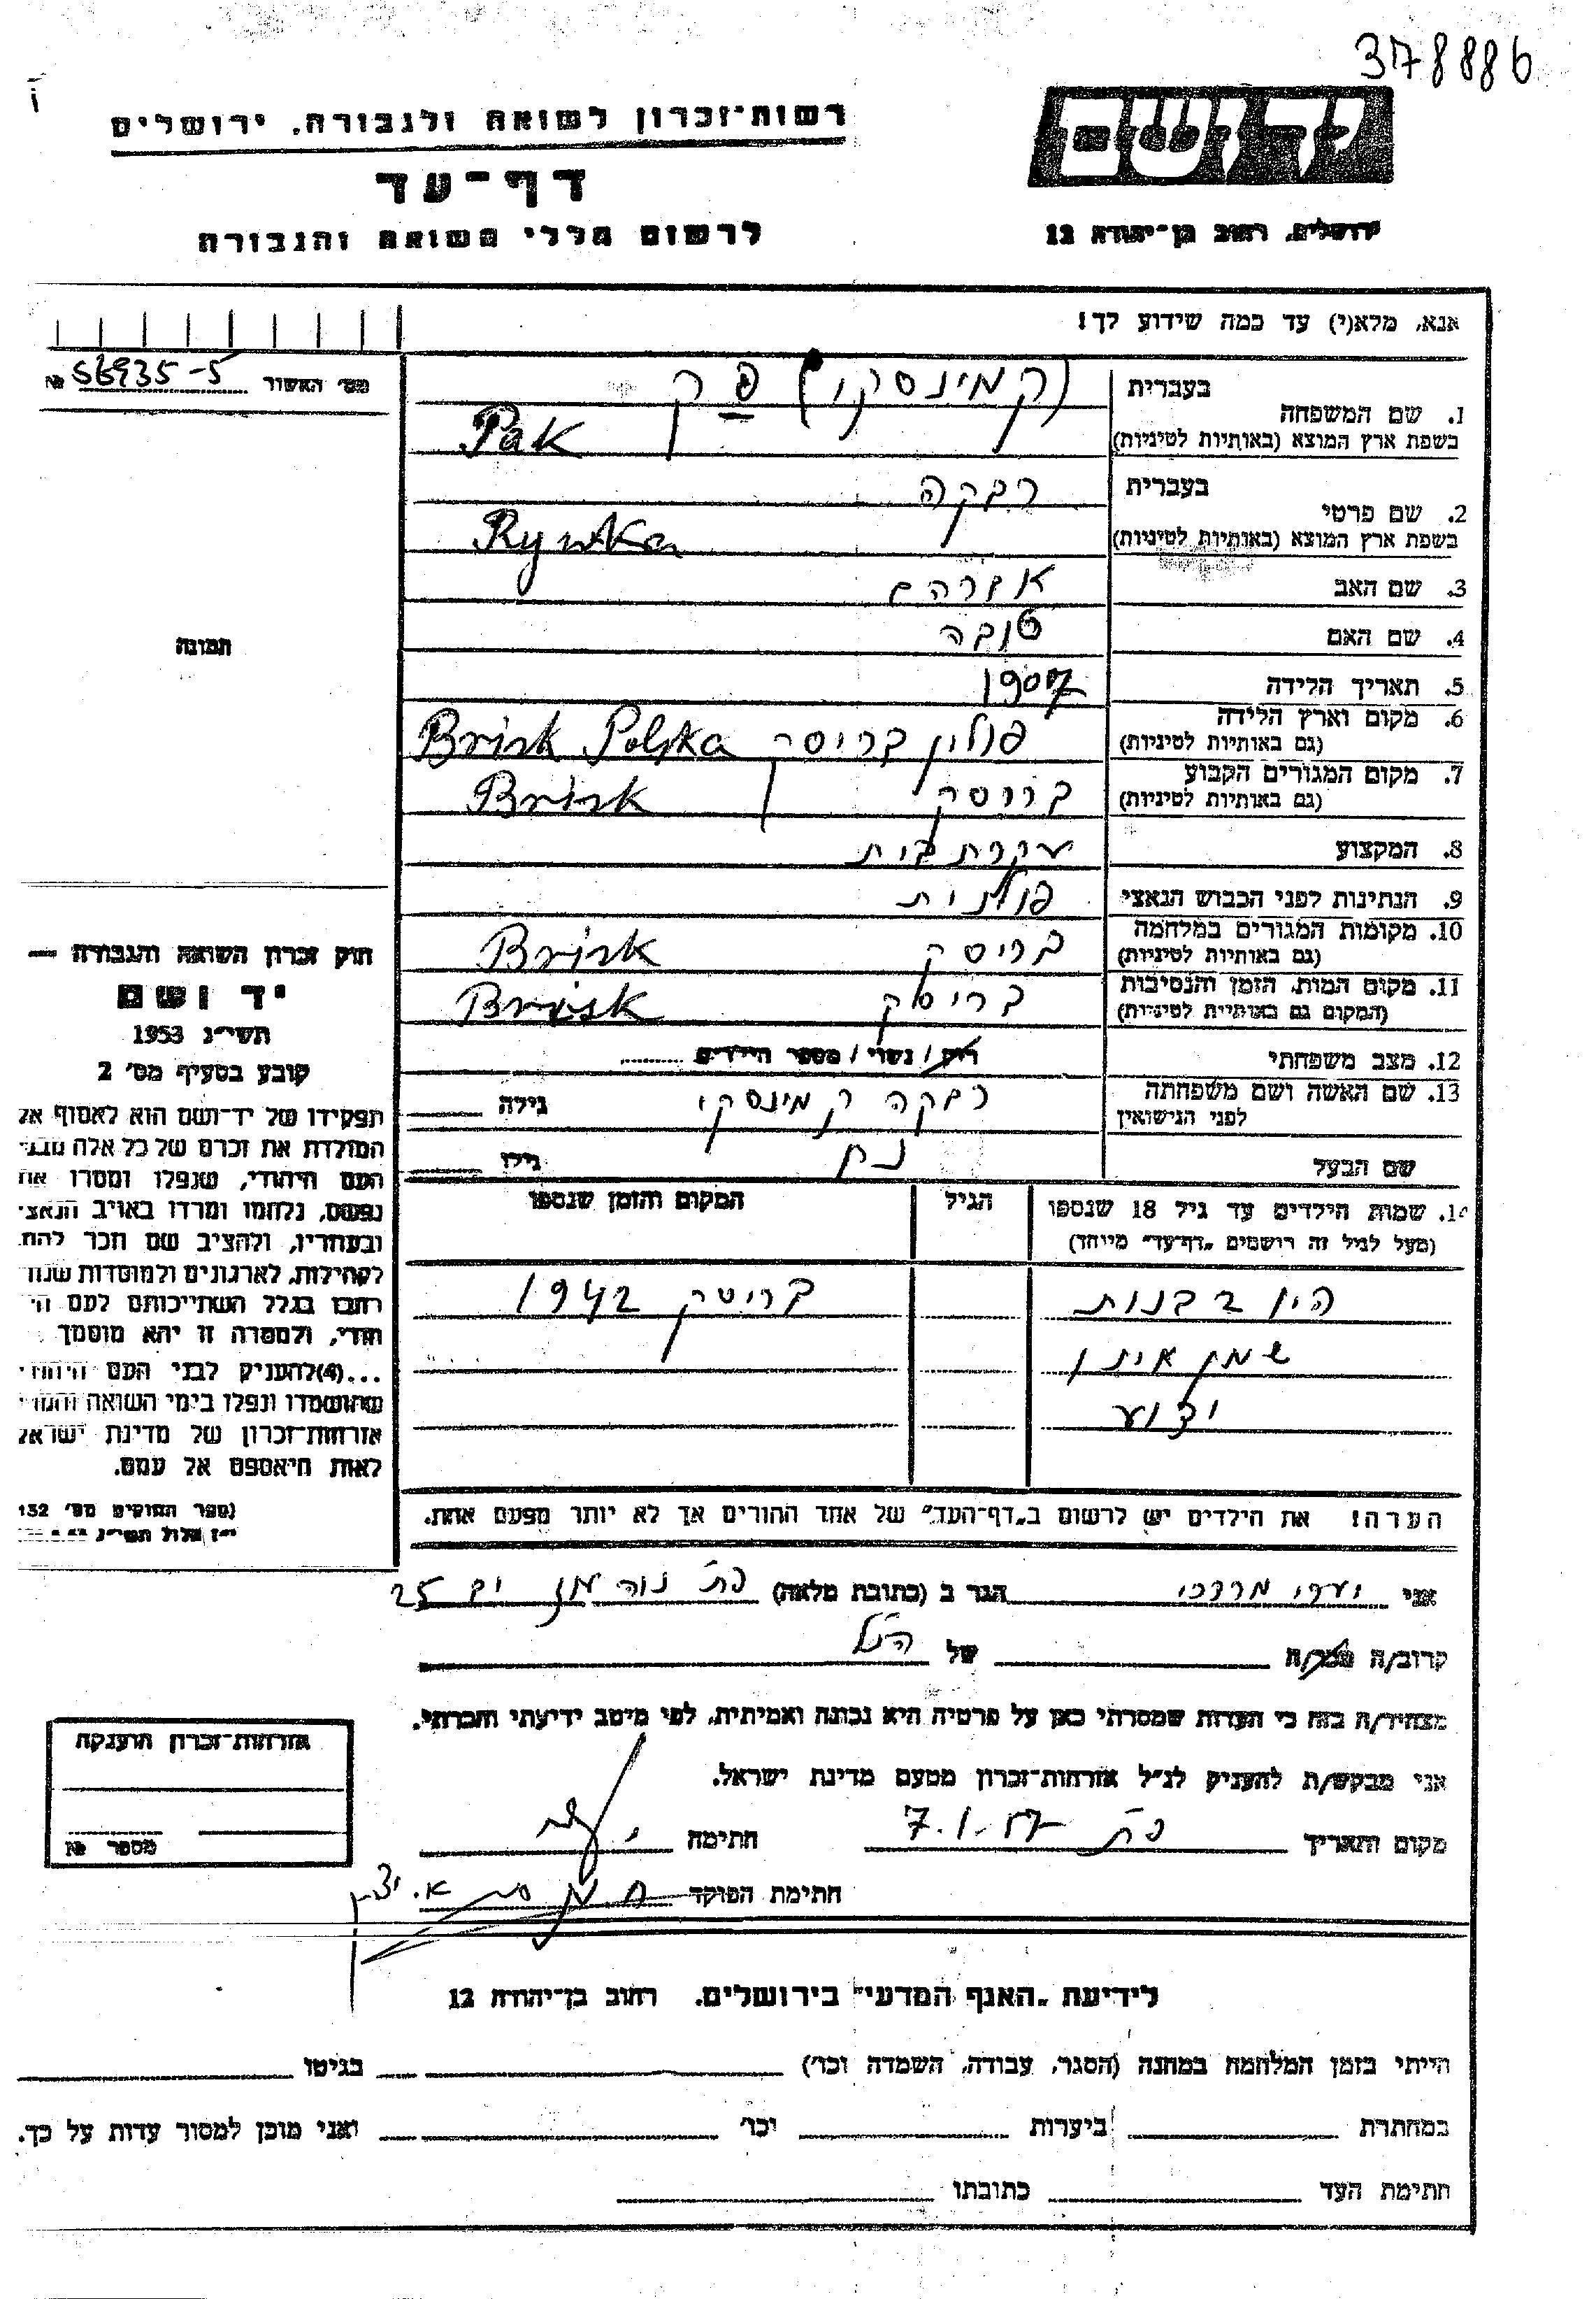 378886
יד ושם
רשות־זכרון לשואה ולגבורה, ירושלים
דף־עד
לרשום חללי השואה והגבורה
ירושלים, רחוב בן־יהודה 12
אנא, מלא(י) עד כמה שידוע לך!
מס׳ האשור № 56935-5
1. שם המשפחה בעברית (קמינסקי) פק
בשפת ארץ המוצא (באותיות לטיניות) Pak
2. שם פרטי בעברית רבקה
בשפת ארץ המוצא (באותיות לטיניות) Rywka
3. שם האב אברהם
4. שם האם טובה
5. תאריך הלידה 1907
6. מקום וארץ הלידה (גם באותיות לטיניות) פולין בריסק Brisk Polska
7. מקום המגורים הקבוע (גם באותיות לטיניות) בריסק Brisk
8. המקצוע עקרת בית
9. הנתינות לפני הכבוש הנאצי פולנית
10. מקומות המגורים במלחמה (גם באותיות לטיניות) בריסק Brisk
11. מקום המות, הזמן והנסיבות (המקום גם באותיות לטיניות) בריסק Brisk
12. מצב משפחתי רוק / נשוי / מספר הילדים
13. שם האשה ושם משפחתה לפני הנישואין רבקה קמינסקי גילה
שם הבעל גילו
14. שמות הילדים עד גיל 18 שנספו (מעל לגיל זה רושמים „דף־עד״ מיוחד) הגיל המקום והזמן שנספו
היו 2 בנות בריסק 1942
שמן אינו
ידוע
הערה! את הילדים יש לרשום ב„דף־העד״ של אחד ההורים אך לא יותר מפעם אחת.
תמונה
חוק זכרון השואה והגבורה —
יד ושם
תשי״ג 1953
קובע בסעיף מס׳ 2
תפקידו של יד־ושם הוא לאסוף אל
המולדת את זכרם של כל אלה מבני
העם היהודי, שנפלו ומסרו את
נפשם, נלחמו ומרדו באויב הנאצי
ובעוזריו, ולהציב שם וזכר להם,
לקהילות, לארגונים ולמוסדות שנח
רבו בגלל השתייכותם לעם הי
הודי, ולמטרה זו יהא מוסמך
...(4) להעניק לבני העם היהודי
שהושמדו ונפלו בימי השואה והמרי
אזרחות־זכרון של מדינת ישראל
לאות היאספם אל עמם.
(ספר החוקים מס׳ 132
י״ז אלול תשי״ג
אני יערי מרדכי הגר ב (כתובת מלאה) פ״ת נוה מגן 25
קרוב/ה מכר/ה של הנ״ל
מצהיר/ה בזה כי העדות שמסרתי כאן על פרטיה היא נכונה ואמיתית, לפי מיטב ידיעתי והכרתי.
אני מבקש/ת להעניק לנ״ל אזרחות־זכרון מטעם מדינת ישראל.
מקום ותאריך פ״ת 7.1.57 חתימה
חתימת הפוקד
אזרחות־זכרון הוענקה
מספר №
לידיעת „האגף המדעי״ בירושלים. רחוב בן־יהודה 12
הייתי בזמן המלחמה במחנה (הסגר, עבודה, השמדה וכו׳) בגיטו
במחתרת ביערות וכו׳ ואני מוכן למסור עדות על כך.
חתימת העד כתובתו